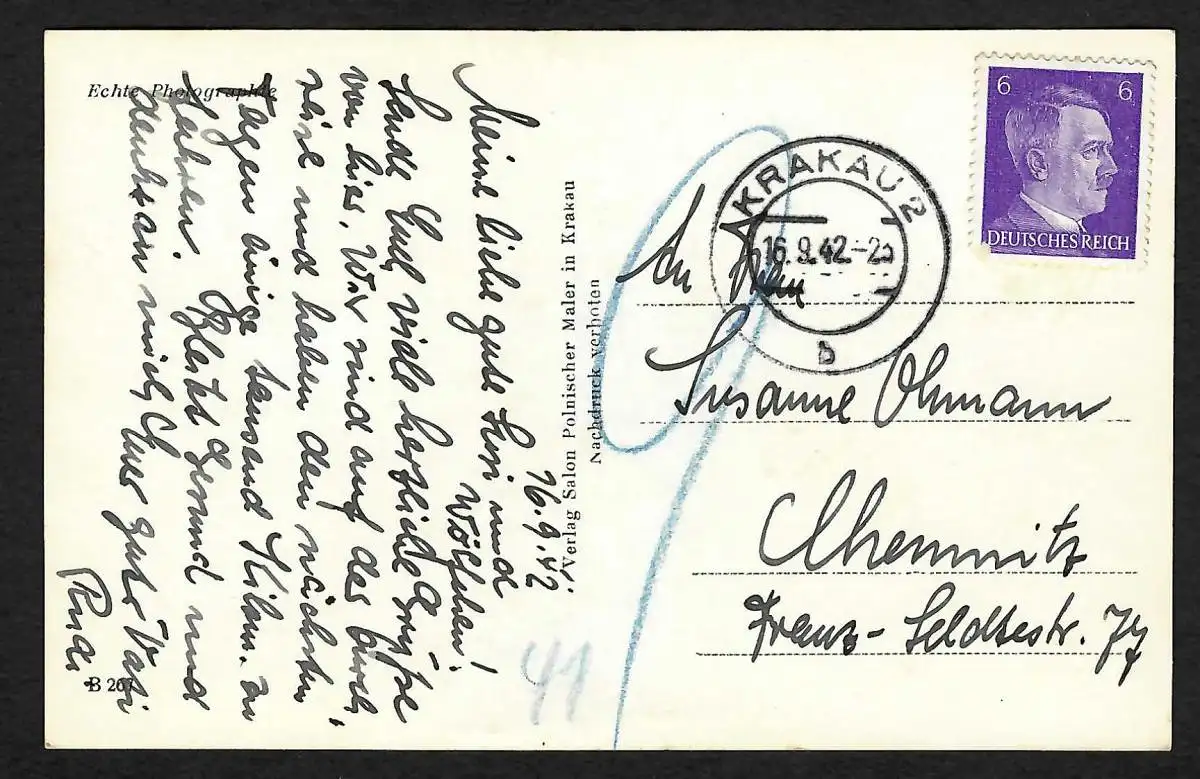 Echte Photographie
16.9.42.
Meine liebe gute Susi und
Wölfchen!
Sende Euch viele herzliche Grüße
von hier. Wir sind auf der Durch,
reise und haben den nächsten
Tagen einige tausend Kilom. zu
fahren. Bleibt gesund und
denkt an mich Euer guter Vati
Rudi
B 207
Verlag Salon Polnischer Maler in Krakau
Nachdruck verboten
41
6 6
DEUTSCHES REICH
KRAKAU 2
16.9.42.-20
b
An Frau
Susanne Ohmann
Chemnitz
Franz-Seldtestr. 77